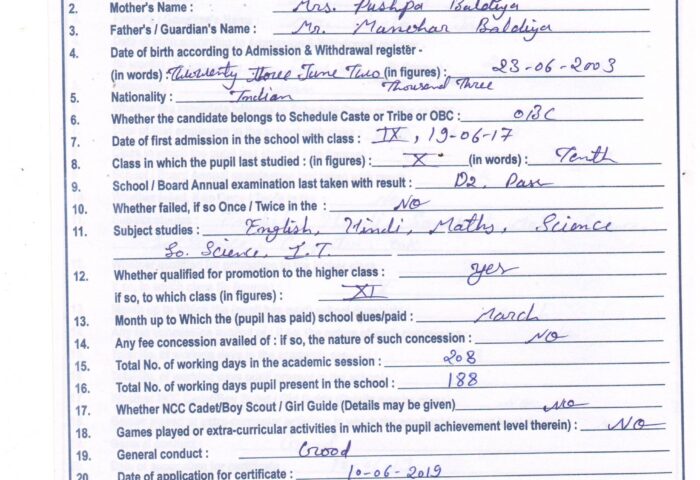 2. Mother's Name : Mrs. Pushpa Baldiya
3. Father's / Guardian's Name : Mr. Manohar Baldiya
4. Date of birth according to Admission & Withdrawal register -
(in words) : Twenty three June Two (in figures) : 23-06-2003
Thousand Three
5. Nationality : Indian
6. Whether the candidate belongs to Schedule Caste or Tribe or OBC : OBC
7. Date of first admission in the school with class : IX, 19-06-17
8. Class in which the pupil last studied : (in figures) : X (in words) : Tenth
9. School / Board Annual examination last taken with result : Pass
10. Whether failed, if so Once / Twice in the : NO
11. Subject studies : English, Hindi, Maths, Science
So. Science, I.T.
12. Whether qualified for promotion to the higher class : yes
if so, to which class (in figures) : XI
13. Month up to Which the (pupil has paid) school dues/paid : March
14. Any fee concession availed of : if so, the nature of such concession : NO
15. Total No. of working days in the academic session : 208
16. Total No. of working days pupil present in the school : 188
17. Whether NCC Cadet/Boy Scout / Girl Guide (Details may be given) NO
18. Games played or extra-curricular activities in which the pupil achievement level therein) : NO
19. General conduct : Good
20 Date of application for certificate : 10-06-2019